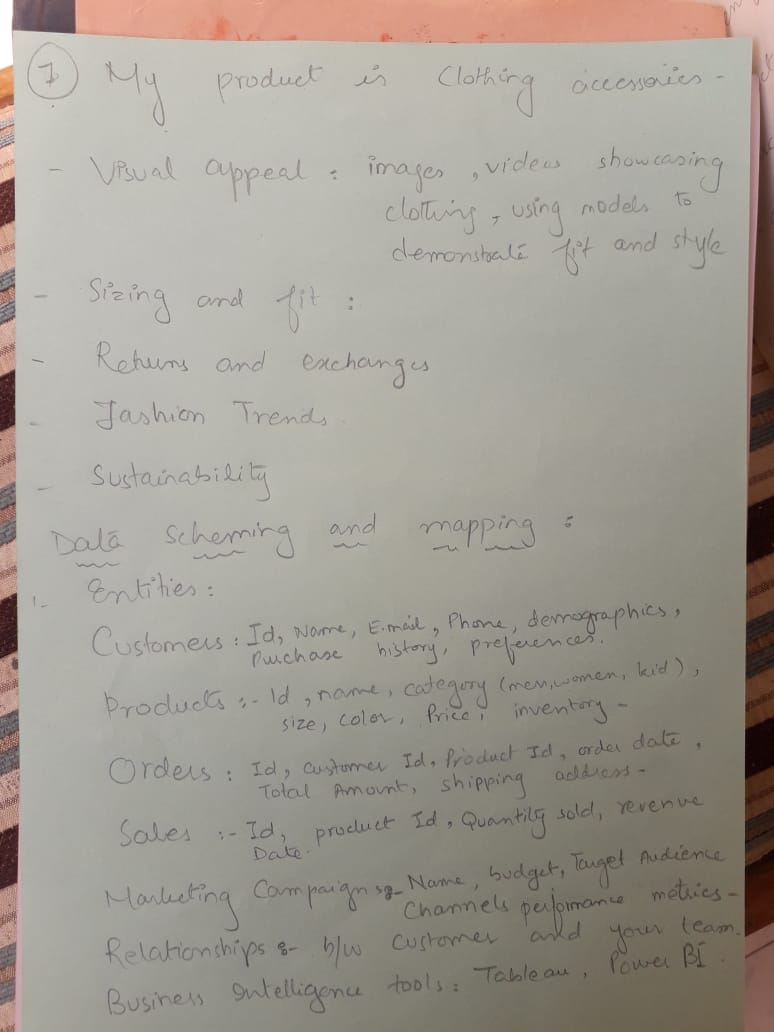 7 My product is Clothing accessories -
- Visual appeal : images , videos showcasing
clothing , using models to
demonstrate fit and style
- Sizing and fit :
- Returns and exchanges
- Fashion Trends
- Sustainability
Data Scheming and mapping :
1. Entities :
Customers : Id, Name, E.mail, Phone, demographics,
Purchase history, preferences.
Products :- Id , name, category (men, women, kid),
size, color, Price, inventory -
Orders : Id, Customer Id, Product Id, order date ,
Total Amount, shipping address -
Sales :- Id, product Id, Quantity sold, revenue
Date.
Marketing Campaign :- Name, budget, Target Audience
Channels performance metrics -
Relationships :- b/w customer and your team.
Business Intelligence tools : Tableau, Power BI.